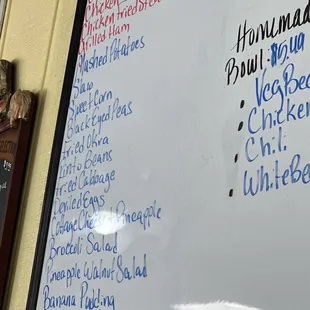 Chicken
Chicken fried Stea
Grilled Ham
Mashed Potatoes
Slaw
Sweet Corn
Black Eyed Peas
Fried Okra
Pinto Beans
Fried Cabbage
Deviled Eggs
Cottage Cheese Pineapple
Broccoli Salad
Pineapple Walnut Salad
Banana Pudding
Homemad
Bowl:
• Veg Bee
• Chicken
• Chili
• White Be